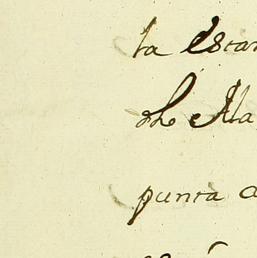 la Estan
de Ala
punta a